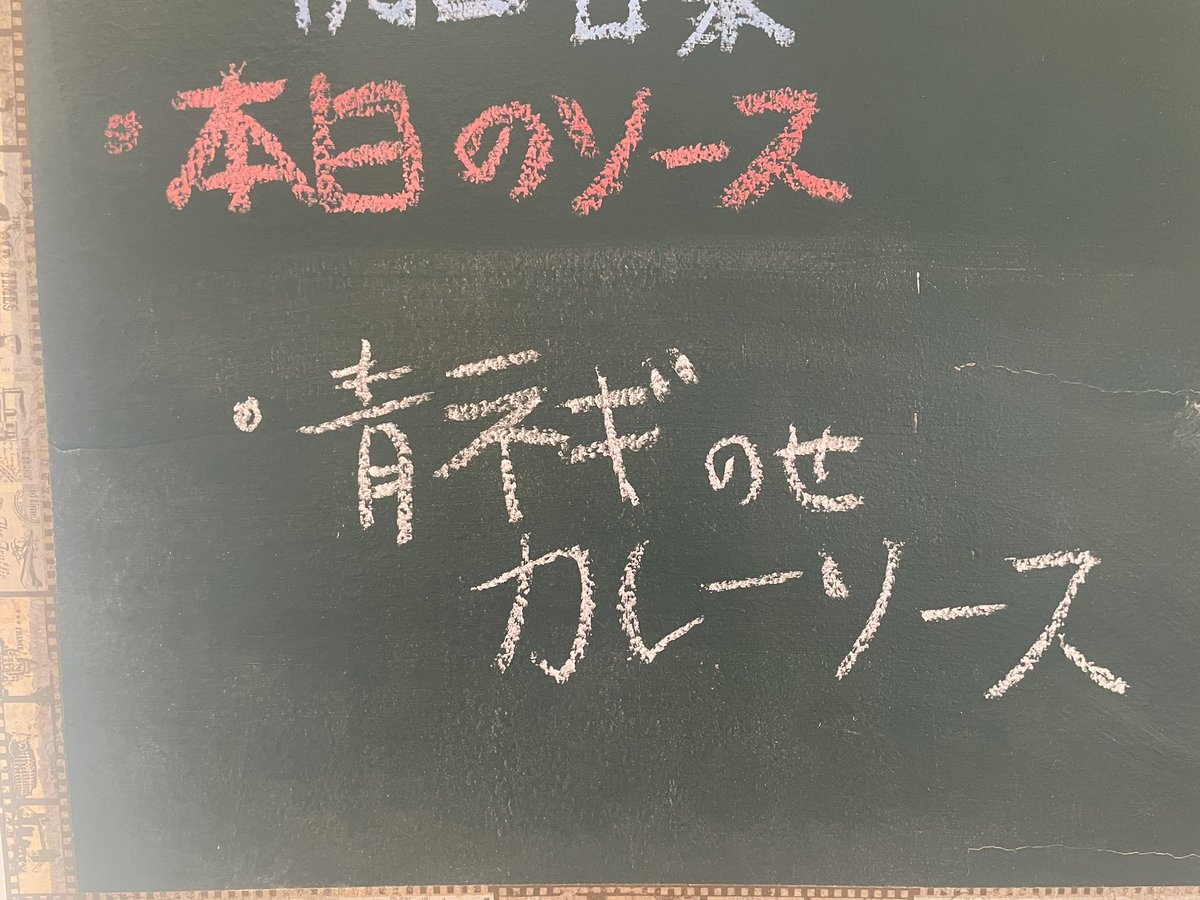 ・本日のソース
・青ネギのせ
カレーソース